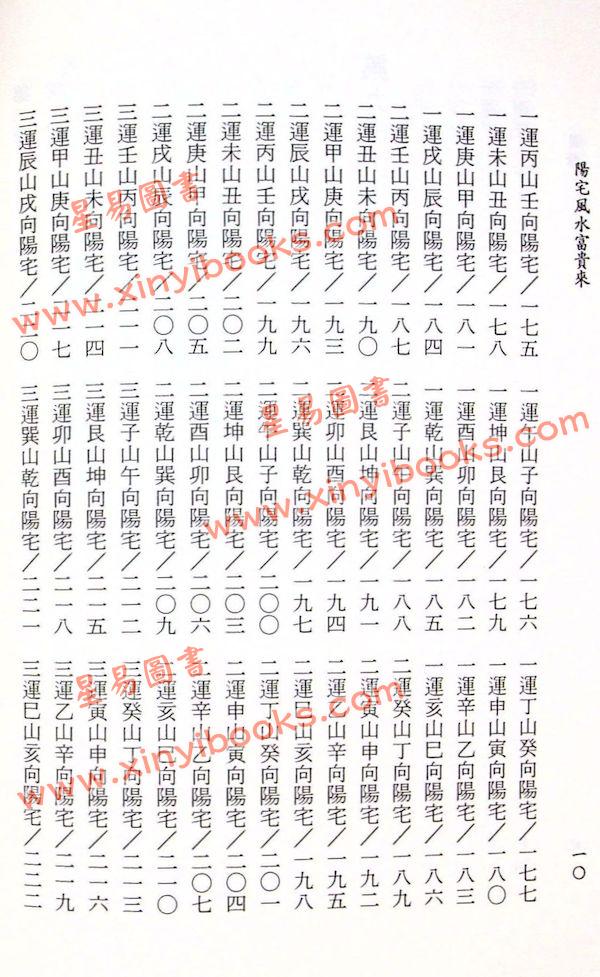 陽宅風水富貴來
一〇
一運丙山壬向陽宅／一七五
一運午山子向陽宅／一七六
一運丁山癸向陽宅／一七七
一運未山丑向陽宅／一七八
一運坤山艮向陽宅／一七九
一運申山寅向陽宅／一八〇
一運庚山甲向陽宅／一八一
一運酉山卯向陽宅／一八二
一運辛山乙向陽宅／一八三
一運戌山辰向陽宅／一八四
一運乾山巽向陽宅／一八五
一運亥山巳向陽宅／一八六
二運壬山丙向陽宅／一八七
二運子山午向陽宅／一八八
二運癸山丁向陽宅／一八九
二運丑山未向陽宅／一九〇
二運艮山坤向陽宅／一九一
二運寅山申向陽宅／一九二
二運甲山庚向陽宅／一九三
二運卯山酉向陽宅／一九四
二運乙山辛向陽宅／一九五
二運辰山戌向陽宅／一九六
二運巽山乾向陽宅／一九七
二運巳山亥向陽宅／一九八
二運丙山壬向陽宅／一九九
二運午山子向陽宅／二〇〇
二運丁山癸向陽宅／二〇一
二運未山丑向陽宅／二〇二
二運坤山艮向陽宅／二〇三
二運申山寅向陽宅／二〇四
二運庚山甲向陽宅／二〇五
二運酉山卯向陽宅／二〇六
二運辛山乙向陽宅／二〇七
二運戌山辰向陽宅／二〇八
二運乾山巽向陽宅／二〇九
二運亥山巳向陽宅／二一〇
三運壬山丙向陽宅／二一一
三運子山午向陽宅／二一二
三運癸山丁向陽宅／二一三
三運丑山未向陽宅／二一四
三運艮山坤向陽宅／二一五
三運寅山申向陽宅／二一六
三運甲山庚向陽宅／二一七
三運卯山酉向陽宅／二一八
三運乙山辛向陽宅／二一九
三運辰山戌向陽宅／二二〇
三運巽山乾向陽宅／二二一
三運巳山亥向陽宅／二二二
星易圖書
www.xinyibooks.com
星易圖書
www.xinyibooks.com
星易圖書
www.xinyibooks.com